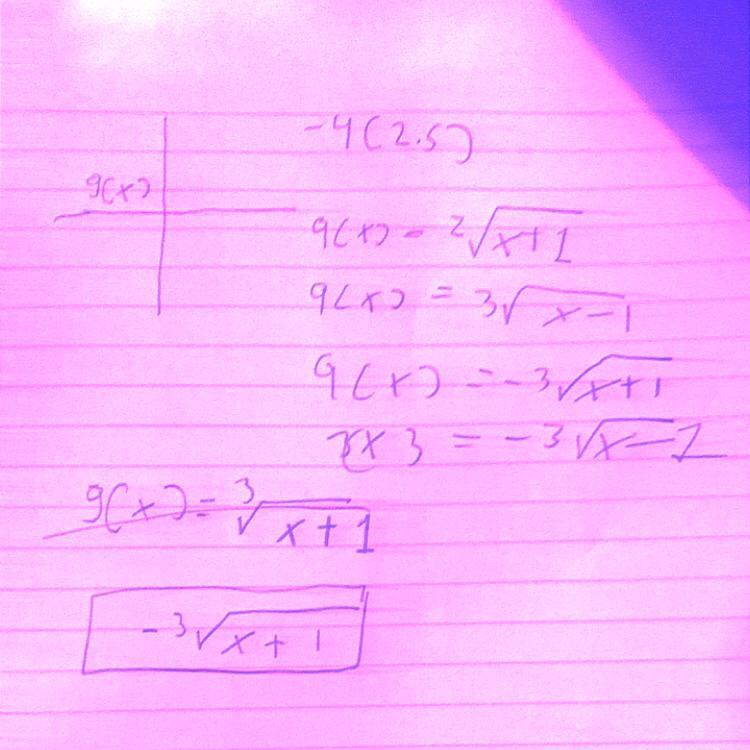 -4(2.5)
g(x)
g(x) = ²√x+1
g(x) = 3√x-1
g(x) = -3√x+1
= -3√x-1
g(x) = ³√x+1
-³√x+1